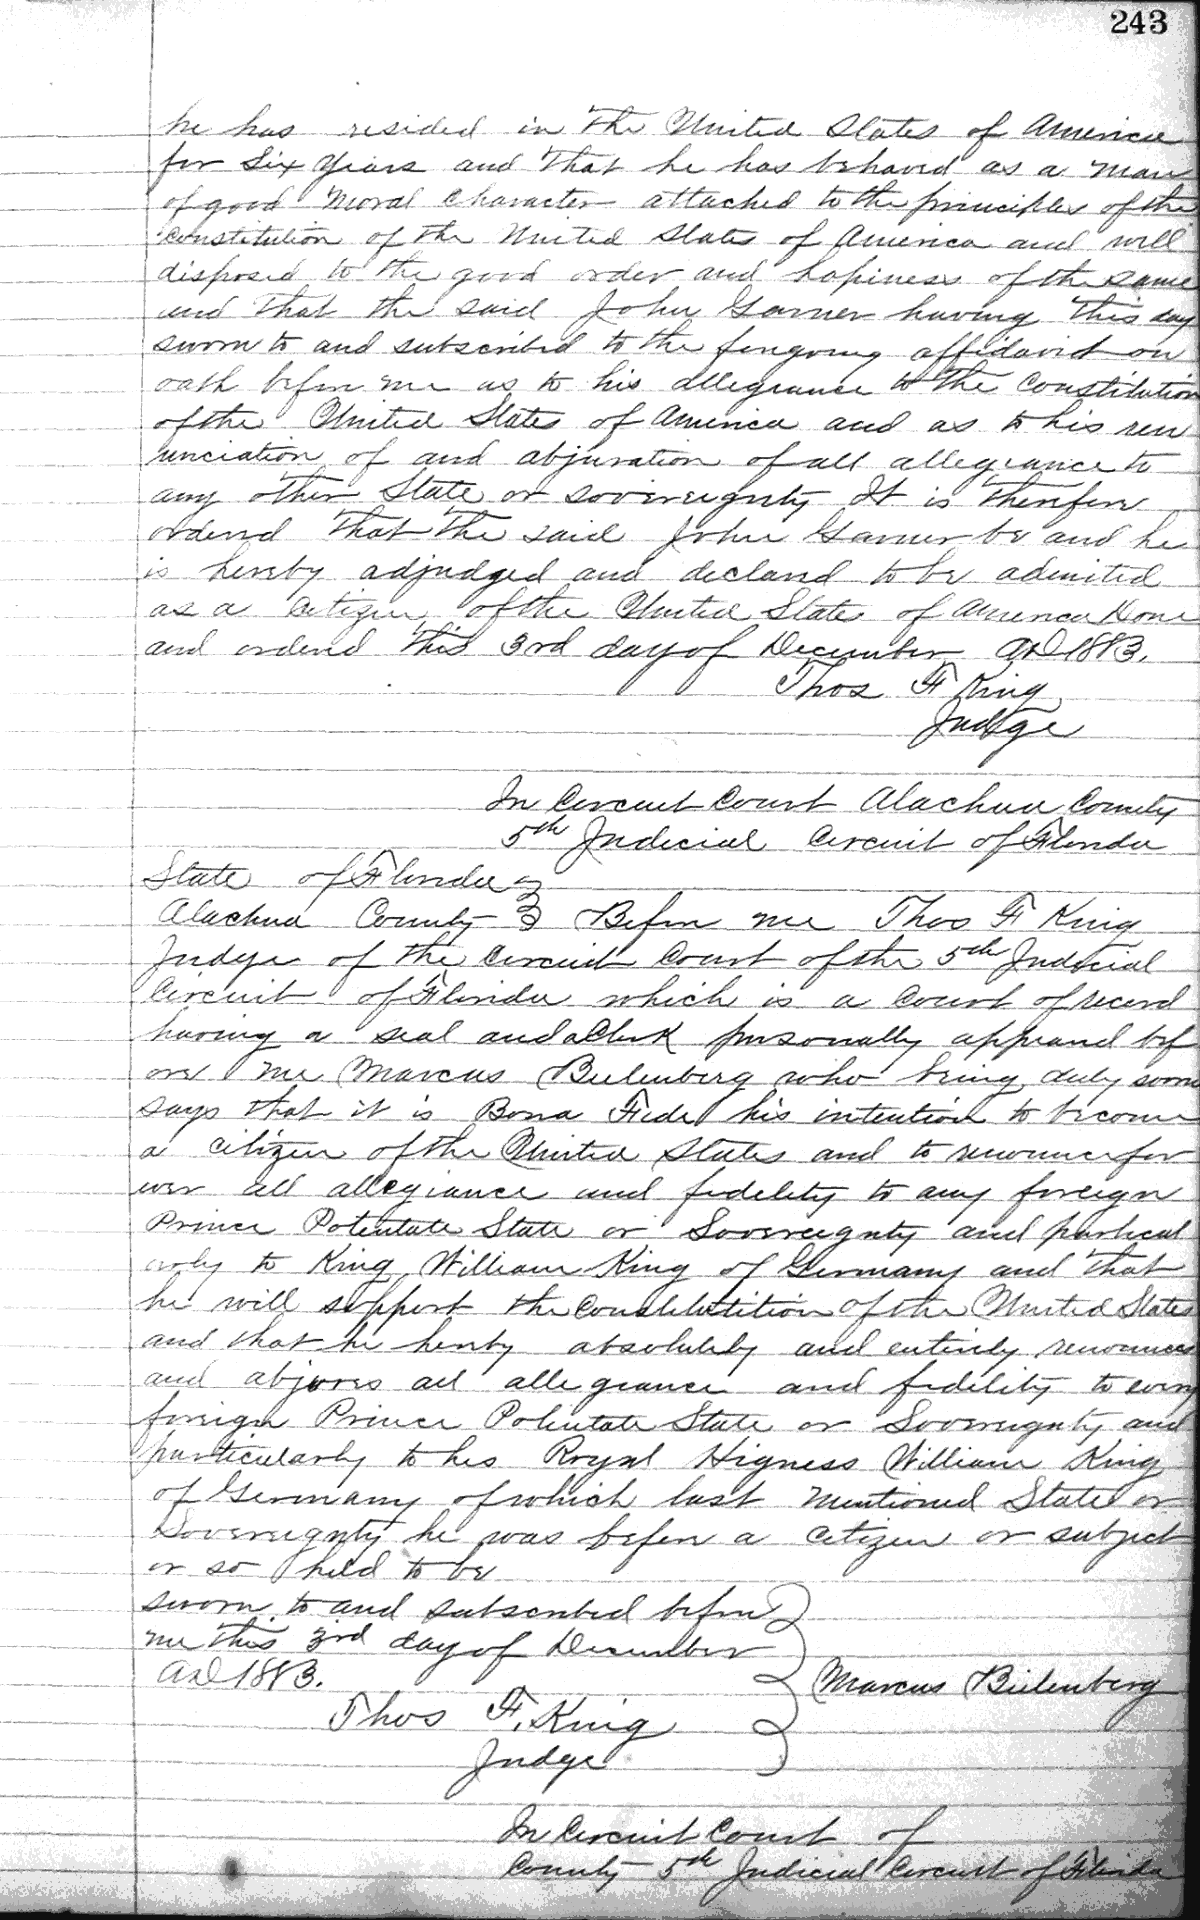 243
he has resided in the United States of America
for Six Years and that he has behaved as a man
of good Moral Character attached to the principles of the
Constitution of the United States of America and well
disposed to the good order and hapiness of the same
and that the said John Garner having this day
sworn to and subscribed to the foregoing affidavit on
oath before me as to his allegiance to the Constitution
of the United States of America and as to his ren
unciation of and abjuration of all allegiance to
any other State or sovereignty It is therefore
ordered that the said John Garner be and he
is hereby adjudged and declared to be admited
as a Citizen of the United States of America Done
and ordered this 3rd day of December AD 1883.
Thos F King
Judge
In Circuit Court Alachua County
5th Judicial Circuit of Florida
State of Florida
Alachua County Before me Thos F King
Judge of the Circuit Court of the 5th Judicial
Circuit of Florida which is a Court of record
having a seal and a Clerk personally appeared bef
ore me Marcus Bielenberg who being duly sworn
says that it is Bona Fide his intention to become
a Citizen of the United States and to renounce for
ever all allegiance and fidelity to any foreign
Prince Potentate State or Sovereignty and particul
arly to King William King of Germany and that
he will support the Constitution of the United States
and that he hereby absolutely and entirely renounces
and abjures all allegiance and fidelity to every
foreign Prince Potentate State or Sovereignty and
particularly to his Royal Higness William King
of Germany of which last mentioned State or
Sovereignty he was before a Citizen or subject
or so held to be
sworn to and subscribed before
me this 3rd day of December
AD 1883.
Marcus Bielenberg
Thos F. King
Judge
In Circuit Court of
County 5th Judicial Circuit of Florida